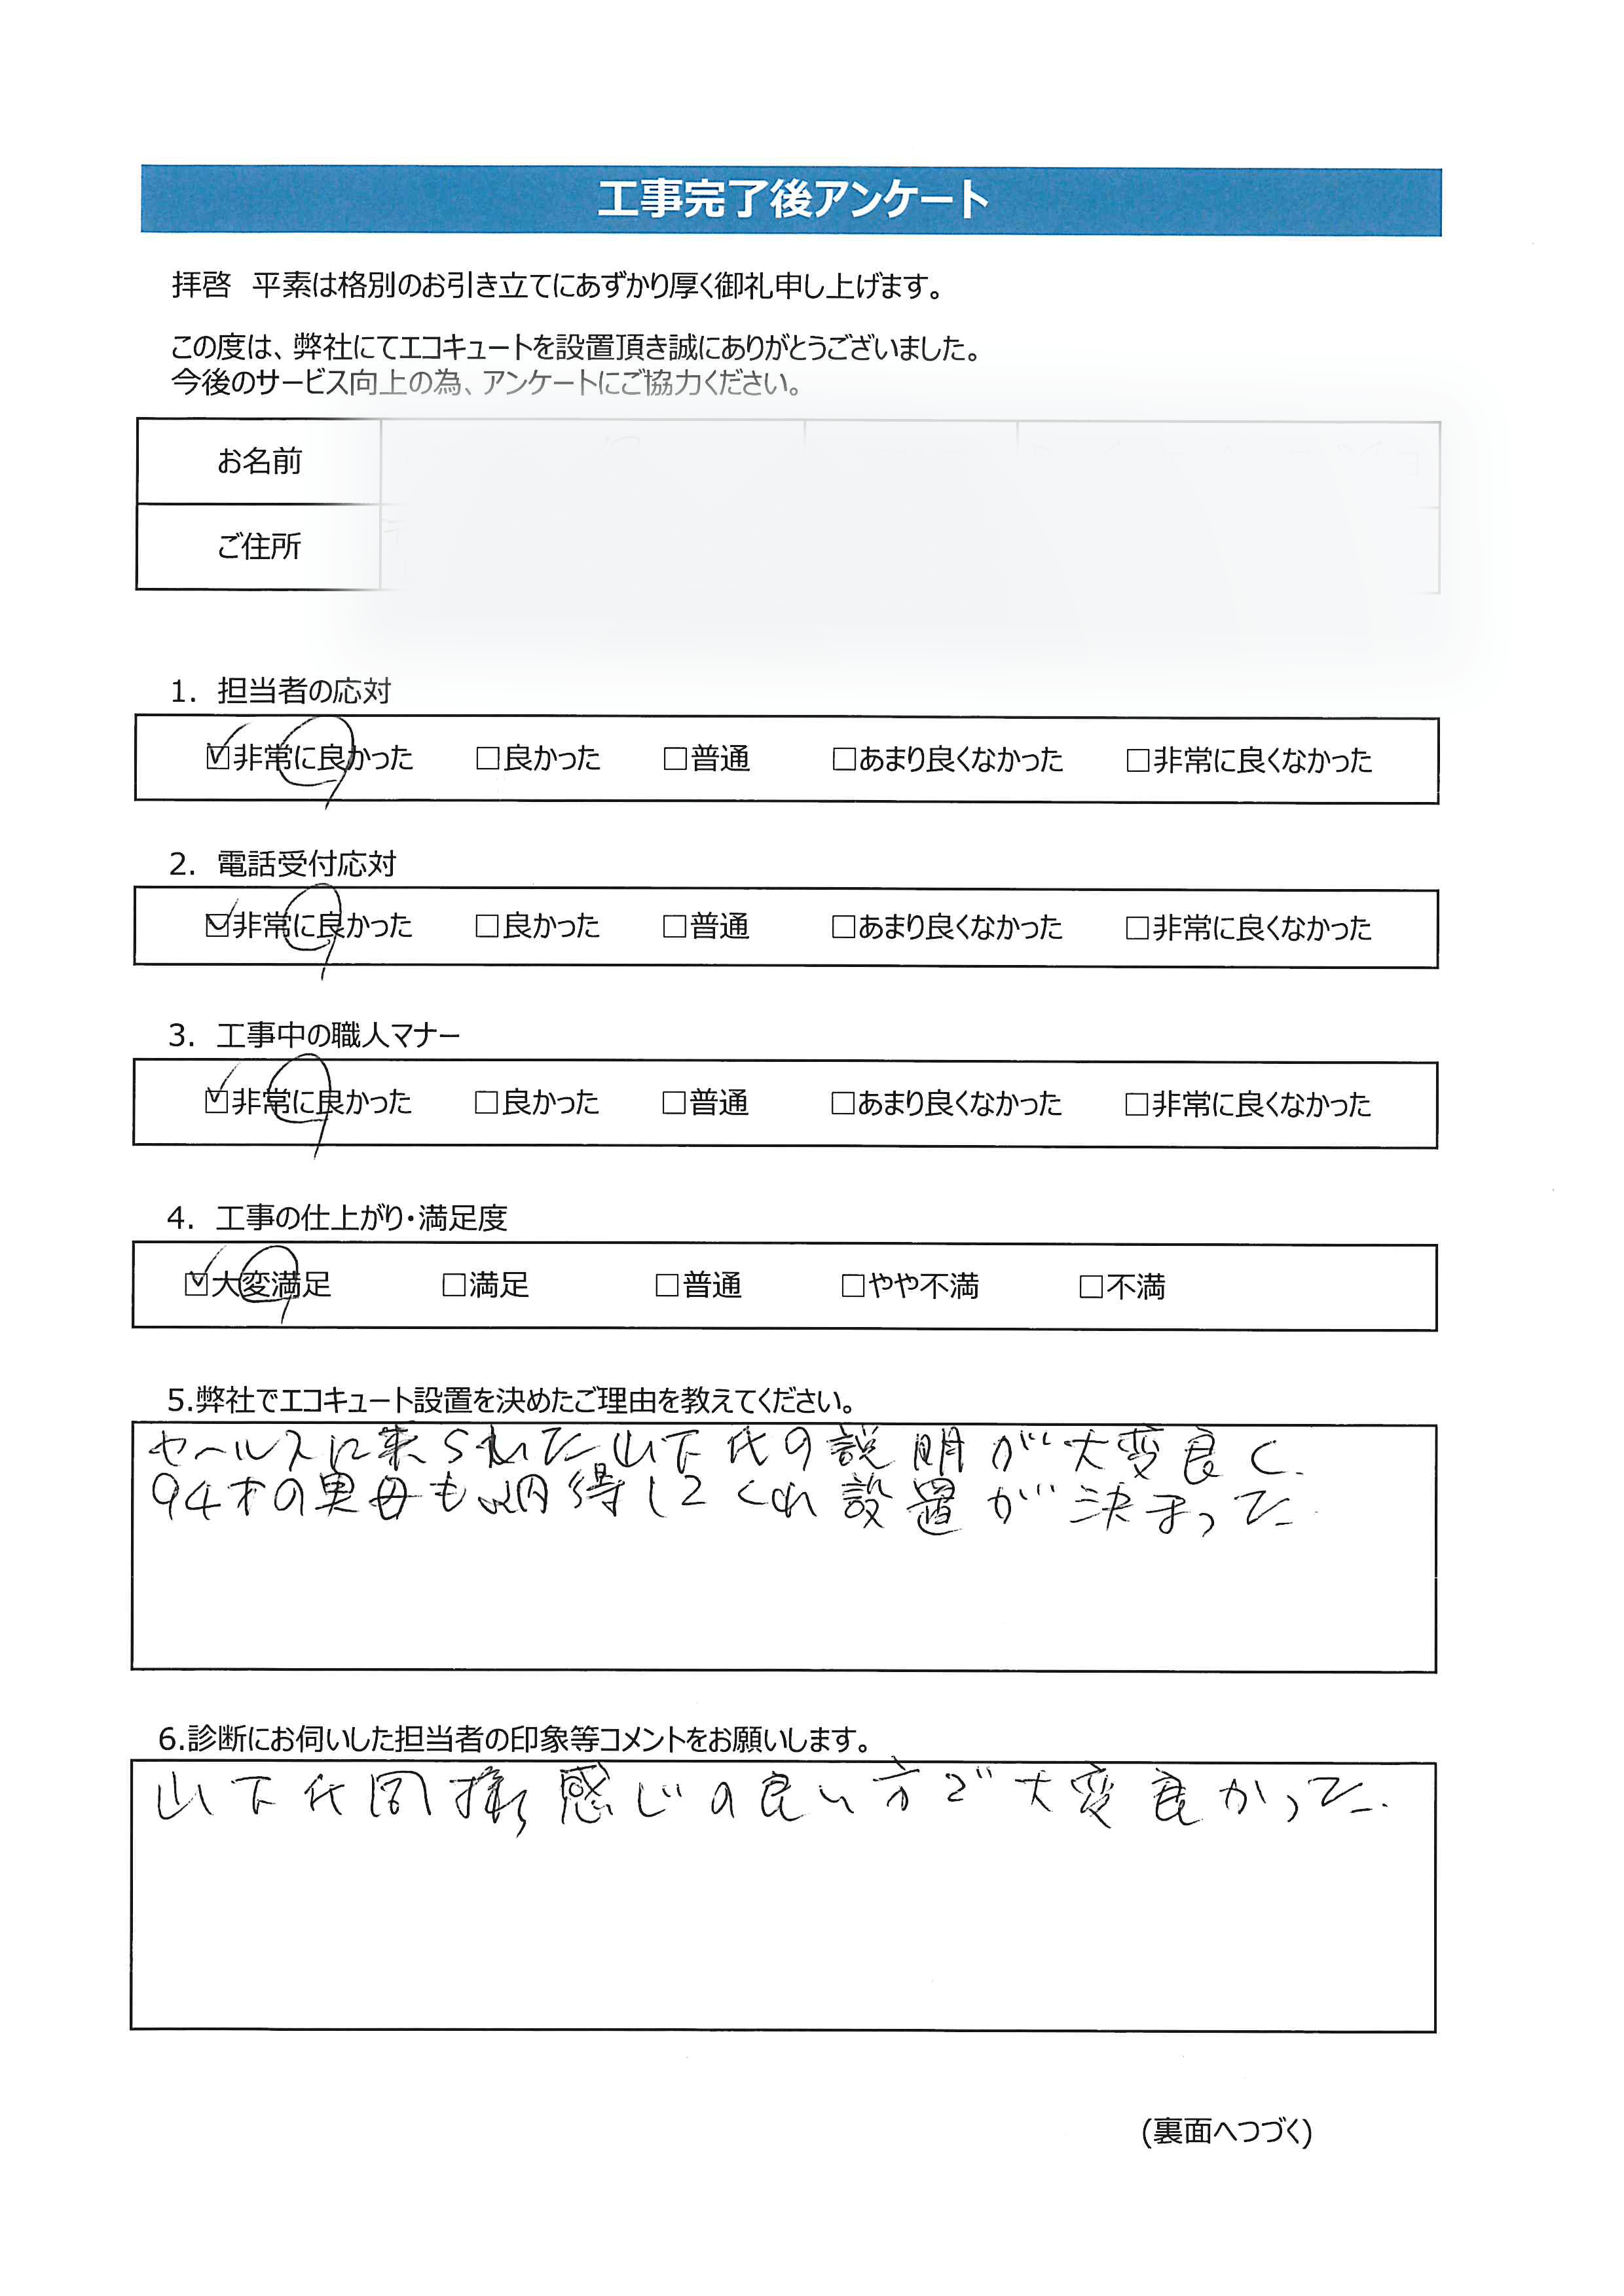 工事完了後アンケート
拝啓　平素は格別のお引き立てにあずかり厚く御礼申し上げます。
この度は、弊社にてエコキュートを設置頂き誠にありがとうございました。
今後のサービス向上の為、アンケートにご協力ください。
お名前
ご住所
1. 担当者の応対
☑非常に良かった □良かった □普通 □あまり良くなかった □非常に良くなかった
2. 電話受付応対
☑非常に良かった □良かった □普通 □あまり良くなかった □非常に良くなかった
3. 工事中の職人マナー
☑非常に良かった □良かった □普通 □あまり良くなかった □非常に良くなかった
4. 工事の仕上がり・満足度
☑大変満足 □満足 □普通 □やや不満 □不満
5.弊社でエコキュート設置を決めたご理由を教えてください。
セールスに来られた山下氏の説明が大変良く、
94才の実母も納得してくれ設置が決まった
6.診断にお伺いした担当者の印象等コメントをお願いします。
山下氏同様感じの良い方で大変良かった.
(裏面へつづく)